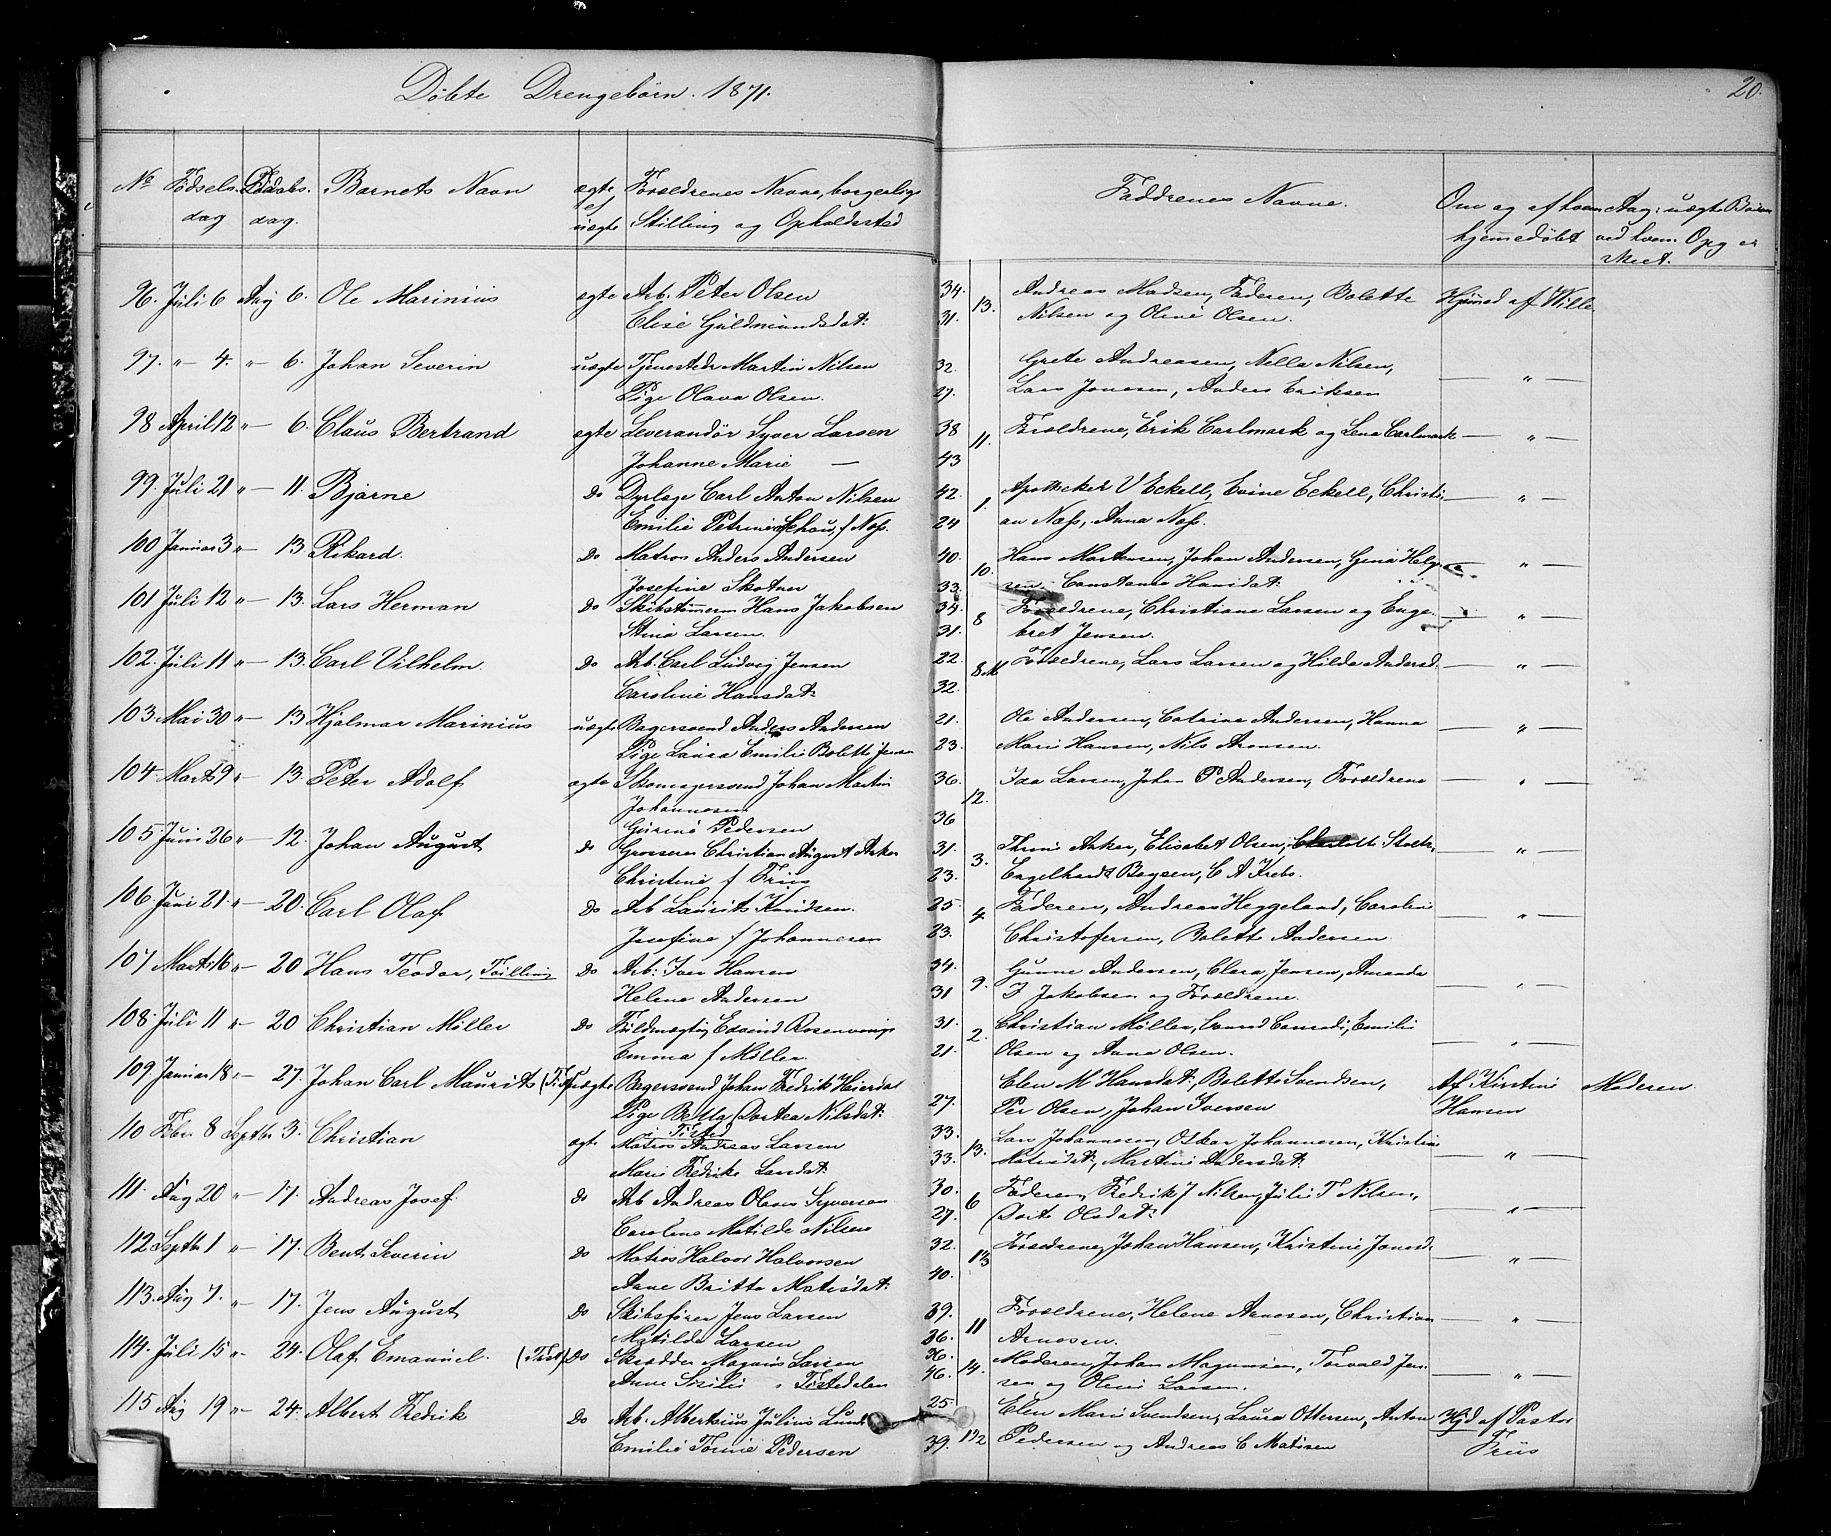 Døbte Drengebørn. 1871.
20.
No Fødsels dag Daabs dag. Barnets Navn ægte el uægte Forældrenes Navne, borgerlige Stilling og Opholdsted Faddrenes Navne. Om og af hvem hjemmedøbt Aag: uægte Børn ved hvem Opg er skeet.
96. Juli 6 Aug 6. Ole Marinius ægte Arb. Peter Olsen 34. 13. Andreas Madsen, Faderen, Bolette Hjmed af Wille
Elise Guldmundsdat: 31. Nilsen og Oline Olsen.
97. " 4. " 6. Johan Severin uægte Tjenestedr Martin Nilsen 32. Grete Andreasen, Nella Nilsen, — " —
Pige Olava Olsen. 27. Lars Jonesen, Anders Eriksen
98 April 12 " 6. Claus Bertrand ægte Leverandør Syver Larsen 38 11. Forældrene, Erik Carlmark og Lena Carlmark — " —
Johanne Marie — 43
99. Juli 21 " 11. Bjarne Do Dyrlæge Carl Anton Nilsen 42. 1. Apotheker V Eckell, Evine Eckell, Christi — " —
Emilie Petrine Schou, f Næss. 24 an Næss, Anna Næss.
100 Januar 3 " 13 Rikard. Do Matros Anders Andersen 40. 10. Hans Mortensen, Johan Andersen, Gina Helge — " —
Josefine Skotner 33. sen, Constance Hansdat:
101 Juli 12 " 13. Lars Herman Do Skibstømerm Hans Jakobsen 34. 8 Forældrene, Christiane Larsen og Enge — " —
Stina Larsen. 31. bret Jensen.
102. Juli 11 " 13. Carl Vilhelm. Do Arb. Carl Ludvig Jensen 22. 8 Forældrene, Lars Larsen og Hilda Andersd. — " —
Caroline Hansdat: 32.
103. Mai 30 " 13 Hjalmar Marinius uægte Bagersvend Anders Andersen 21. Ole Andersen, Catrine Andersen, Hanna — " —
Pige Laura Emilie Bolette Jensen 23. Marie Hansen, Nils Aronsen.
104. Marts 9 " 13. Peter Adolf ægte Skomagersvend Johan Martin 36. 12. Ida Larsen, Johan P Andersen, Forældrene — " —
Johannesen
Gurine Pedersen 36
105. Juni 26 " 12. Johan August Do Grosserer Christian August Anker 31. 3. Thrine Anker, Elisabet Olsen, — " —
Christine f Friis 23. Engelhardt Boysen, C A Krebs.
106 Juni 21. " 20. Carl Olaf Do Arb Laurits Knudsen. 25. 4. Faderen, Andreas Heggeland, Caroline — " —
Josefine f Johannesen 23. Christofersen, Bolette Andersen
107 Marts 16 " 20 Hans Teodor, Tvilling Do Arb: Iver Hansen 34. 9. Gunne Andersen, Clara Jensen, Amanda — " —
Helene Andersen 31 J Jakobsen og Forældrene.
108. Juli 11 " 20 Christian Møller Do Fuldmægtig Edvind Rosenvinge 31. 2. Christian Møller, Conrad Conradi, Emilie — " —
Emma f Møller. 21. Olsen og Anna Olsen.
109. Januar 18 " 27. Johan Carl Mauritz uægte Bagersvend Johan Fredrik Heierdal Elen M Hansdat: Bolette Svendsen, Af Kirstine Moderen.
Pige Dortea Nilsdat: 27. Per Olsen, Johan Iversen Hansen
i Tisted
110 Febr. 8 Septbr 3. Christian ægte Matros Andreas Larsen 33. 13. Lars Johannesen, Oskar Johannesen, Kristine — " —
Marie Fredrikke Larsdat: 33. Matisdat:, Martine Andersdat:
111. Aug 20 " 17. Andreas Josef. Do Arb Andreas Olaus Syversen 30. 6 Faderen, Fredrik J Nilsen, Julie T Nilsen, — " —
Caroline Matilde Nilsen 27. Dorte Olsdat:
112 Septbr 1 " 17. Bent Severin Do Matros Halvor Halvorsen 32. 13 Forældrene, Johan Hansen, Kristine Jonsd. — " —
Anne Britte Matisdat: 40.
113. Aug 7. " 17. Jens August Do Skibsfører Jens Larsen 39. 11 Forældrene, Helene Arnesen, Christian — " —
Matilde Larsen 36. Arnesen.
114. Juli 15 " 24. Olaf Emanuel. (Tist) Do Skrædder Magnus Larsen 36. 14. Moderen, Johan Magnusen, Torvald Jen — " —
Anne Sisilie i Tistedalen 46. sen og Oline Larsen.
115 Aug 19 " 24. Albert Fredrik Do Arb. Albertius Julius Lund 25. 12 Elen Marie Svendsen, Laura Ottersen, Anton Hjd af Pastor
Emilie Tomine Pedersen 39. Pedersen og Andreas C Matisen Friis